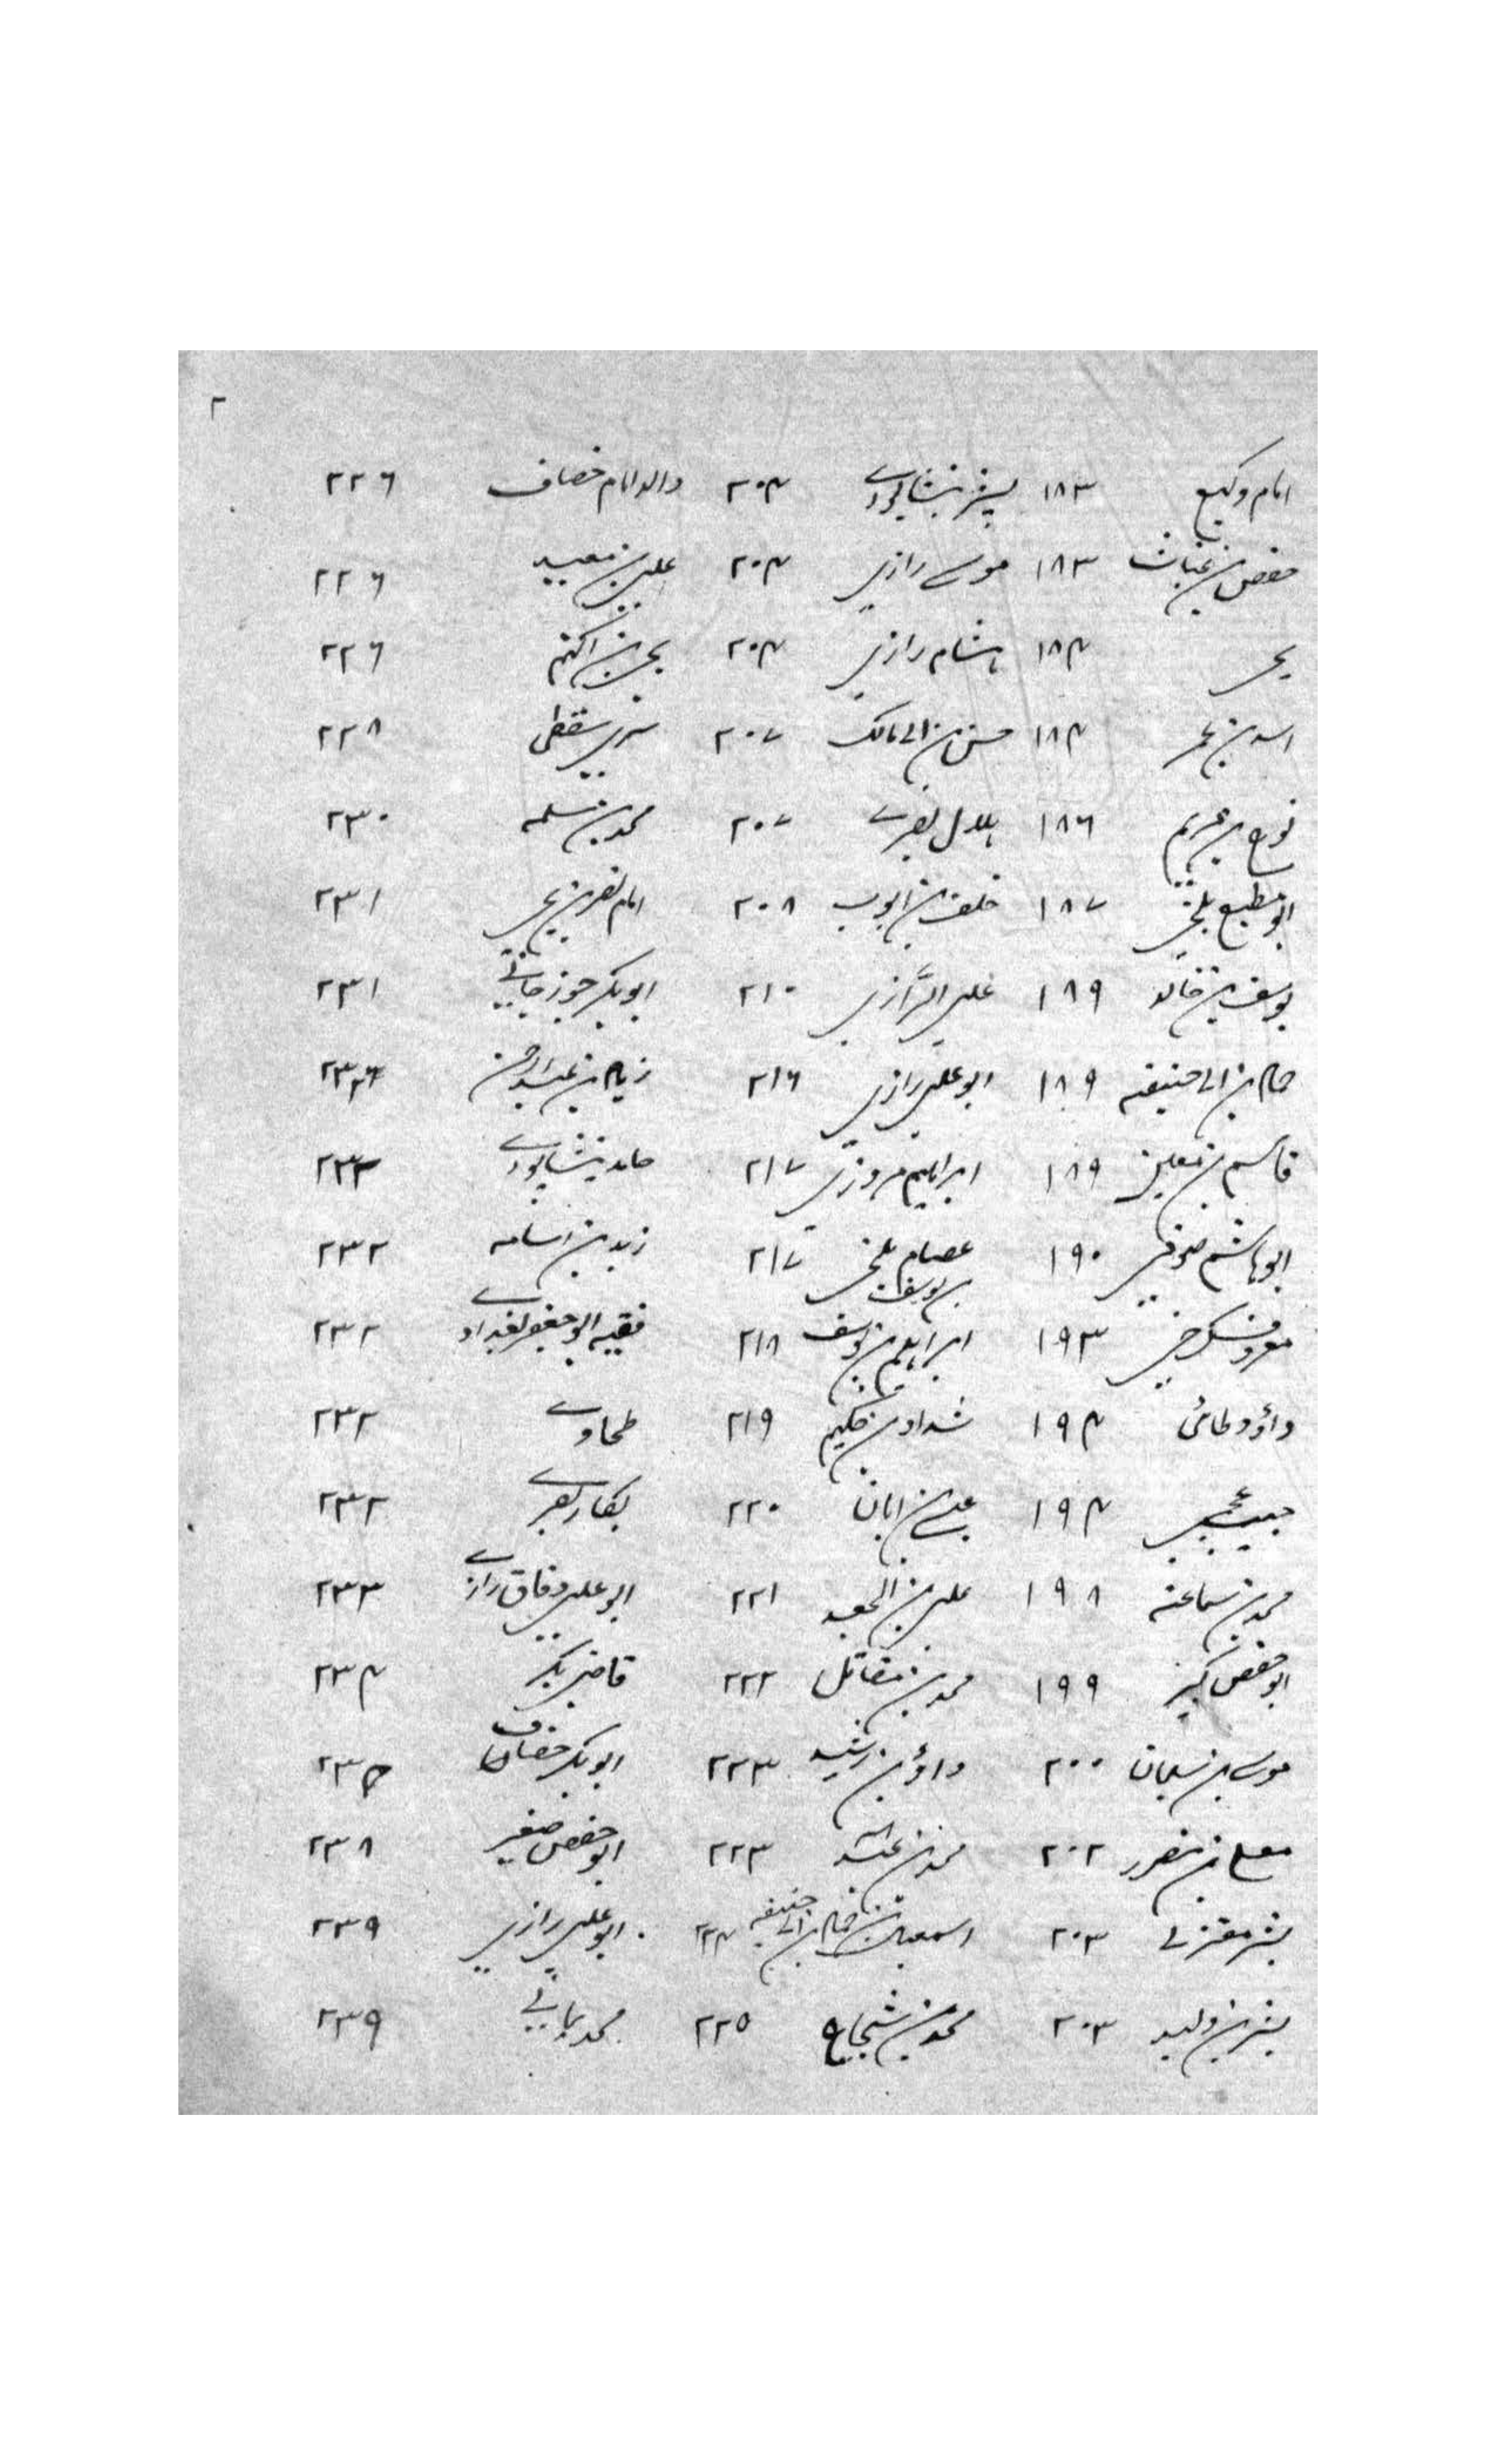 ۲
امام وکیع ۱۸۳ بشر نیشاپوری ۲۰۴ والد امام خصاف ۲۲۶
حفص بن غیاث ۱۸۳ موسی رازی ۲۰۴ علی بن معبد ۲۲۶
یحیی ۱۸۴ ہشام رازی ۲۰۴ یحیی بن اکثم ۲۲۶
اسد بن عمر ۱۸۴ حسن بن ابی مالک ۲۰۷ سری سقطی ۲۲۸
نوح بن مریم ۱۸۶ ہلال بصری ۲۰۷ محمد بن سلمہ ۲۳۰
ابو مطیع بلخی ۱۸۷ خلف بن ایوب ۲۰۸ امام نصر بن یحیی ۲۳۱
یوسف بن خالد ۱۸۹ علی الرازی ۲۱۰ ابو بکر جوزجانی ۲۳۱
حماد بن ابی حنیفہ ۱۸۹ ابو علی رازی ۲۱۶ زیاد بن عبدالرحمن
قاسم بن معین ۱۸۹ ابراہیم مروزی ۲۱۷ حامد نیشاپوری
ابو ہاشم صوفی ۱۹۰ عصام بلخی بن یوسف ۲۱۷ زید بن اسامہ ۲۳۲
معروف کرخی ۱۹۳ ابراہیم بن یوسف ۲۱۸ فقیہ ابو جعفر بغدادی ۲۳۲
داؤد طائی ۱۹۴ شداد بن حکیم ۲۱۹ طحاوی ۲۳۲
حبیب عجمی ۱۹۴ عیسی بن ابان ۲۲۰ بکار بصری ۲۳۲
محمد بن سماعہ ۱۹۸ علی بن الجعد ۲۲۱ ابو علی دقاق رازی ۲۳۳
ابو حفص کبیر ۱۹۹ محمد بن مقاتل ۲۲۲ قاضی بکر ۲۳۴
موسی بن سلیمان ۲۰۰ داؤد بن رشید ۲۲۳ ابو بکر خصاف ۲۳۵
معلی بن منصور ۲۰۲ محمد بن عبداللہ ۲۲۳ ابو حفص صغیر ۲۳۸
بشر معتزلی ۲۰۳ اسمعیل بن حماد بن ابی حنیفہ ۲۲۴ ابو علی رازی ۲۳۹
بشر بن ولید ۲۰۳ محمد بن شجاع ۲۲۵ محمد ۲۳۹